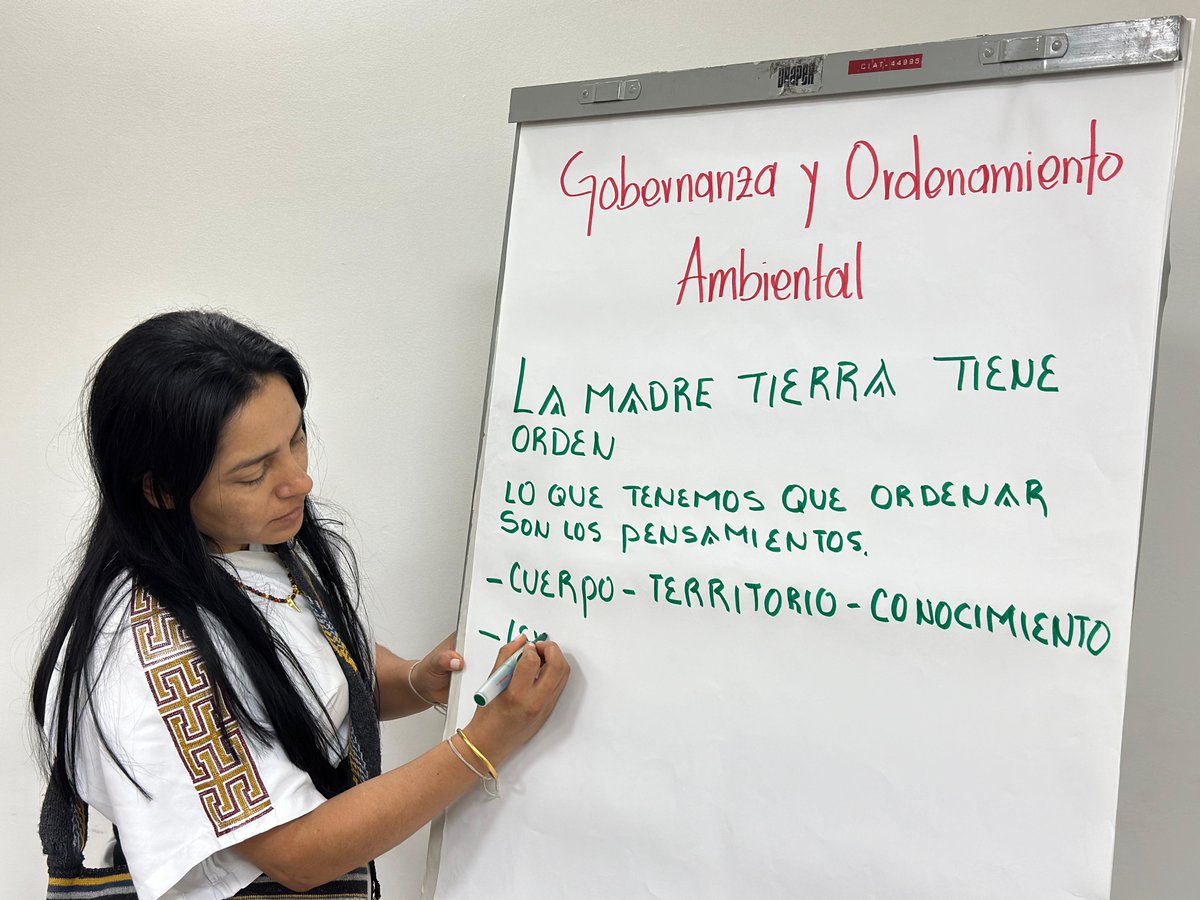 DRAPER
CIAT-44995
Gobernanza y Ordenamiento
Ambiental
LA MADRE TIERRA TIENE
ORDEN
LO QUE TENEMOS QUE ORDENAR
SON LOS PENSAMIENTOS.
- CUERPO - TERRITORIO - CONOCIMIENTO
-